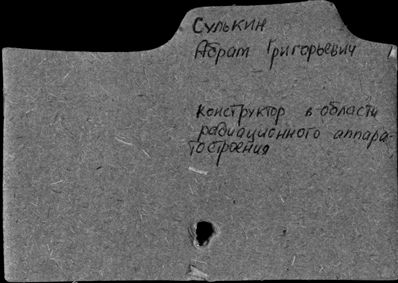 Сулькин
Абрам Григорьевич
конструктор в области
радиационного аппара-
тостроения